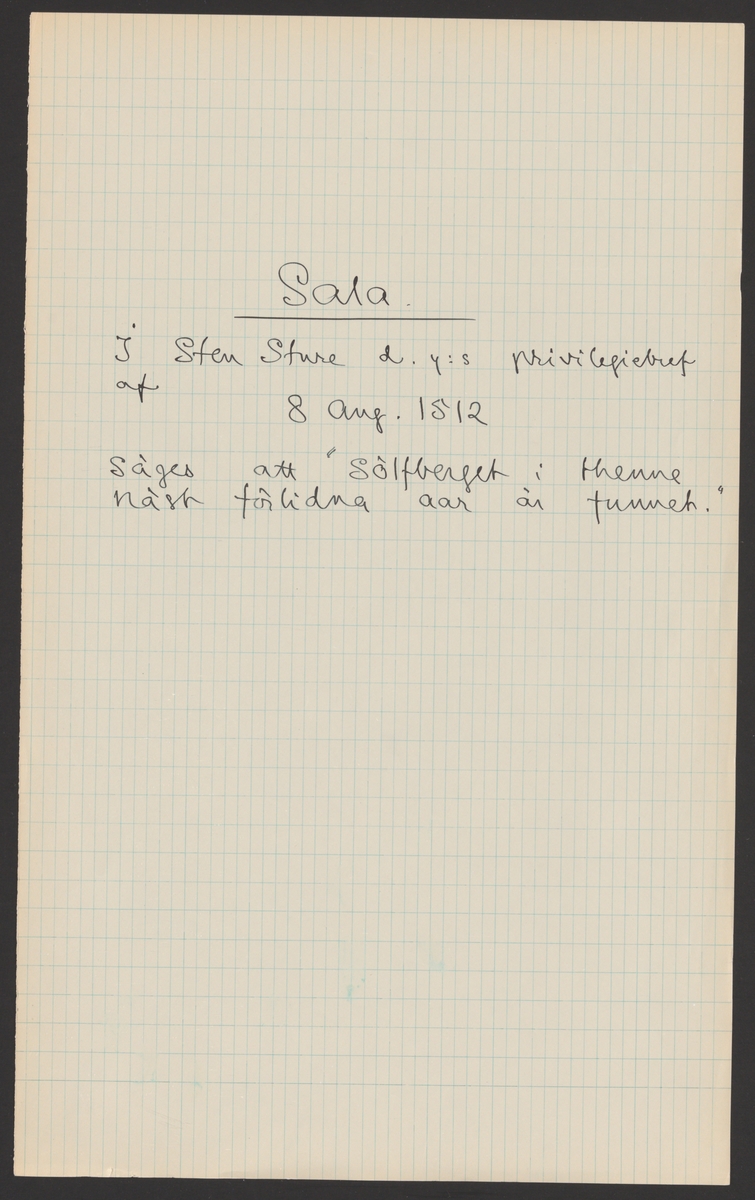 Sala.
I Sten Sture d. y:s privilegiebref
af
8 Aug. 1512
säges att "Sölfberget i thenne
näst förlidna aar är funnet."